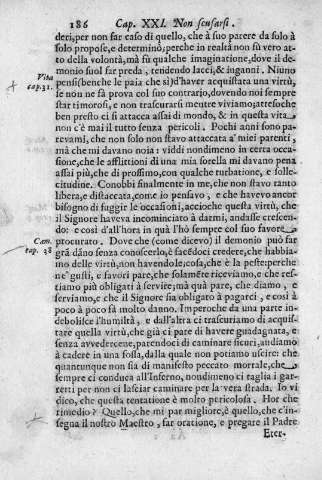 186 Cap. XXI. Non scusarsi.
deri, per non far caso di quello, chè à suo parere da solo à
solo propose, e determinò; perche in realtà non fù vero at-
to della volontà, mà fù qualche imaginatione, dove il de-
monio suol far preda, tendendo lacci, & inganni. Niuno
Vita pensi (benche le paia che sì) d'haver acquistata una virtù,
cap. 31. se non ne fà prova col suo contrarjo, dovendo noi sempre
star timorosi, e non trascurarsi mentre viviamo; attesoche
ben presto ci si attacca assai di mondo, & in questa vita
non c'è mai il tutto senza pericoli. Pochi anni sono pa-
revami, che non solo non stavo attaccata a' miei parenti,
mà che mi davano noia: viddi nondimeno in certa occa-
sione, che le afflittioni di una mia sorella mi davano pena
assai più, che di prossimo, con qualche turbatione, e solle-
citudine. Conobbi finalmente in me, che non stavo tanto
libera, e distaccata, come io pensavo, e che havevo ancor
bisogno di fuggir le occasioni, accioche questa virtù, che
il Signore haveva incominciato à darmi, andasse crescen-
do: e così d'all'hora in quà l'hò sempre col suo favore
Cam. procurato. Dove che (come dicevo) il demonio può far
cap. 38 grã dãno senza conoscerlo, è facēdoci credere, che habbia-
no delle virtù, non havendole, cosa, che è la peste; perche
ne' gusti, e favori pare, che solamēte riceviamo, e che res-
tiamo più obligati à servire; mà quà pare, che diamo, e
serviamo, e che il Signore sia obligato à pagarci, e così à
poco à poco fà molto danno. Imperoche da una parte in-
debolisce l'humiltà, e dall'altra ci trascuriamo di acquis-
tare quella virtù, che già ci pare di havere guadagnata, e
senza avvedercene, parendoci di caminare sicuri, andiamo
à cadere in una fossa, dalla quale non potiamo uscire: che
quantunque non sia di manifesto peccato mortale, che
sempre ci conduca all'Inferno, nondimeno ci taglia i gar-
retti per non ci lasciar caminare per la vera strada. Io vi
dico, che questa tentatione è molto pericolosa. Hor che
rimedio? Quello, che mi par migliore, è quello, che c'in-
segna il nostro Maestro, far oratione, e pregare il Padre
Eter-